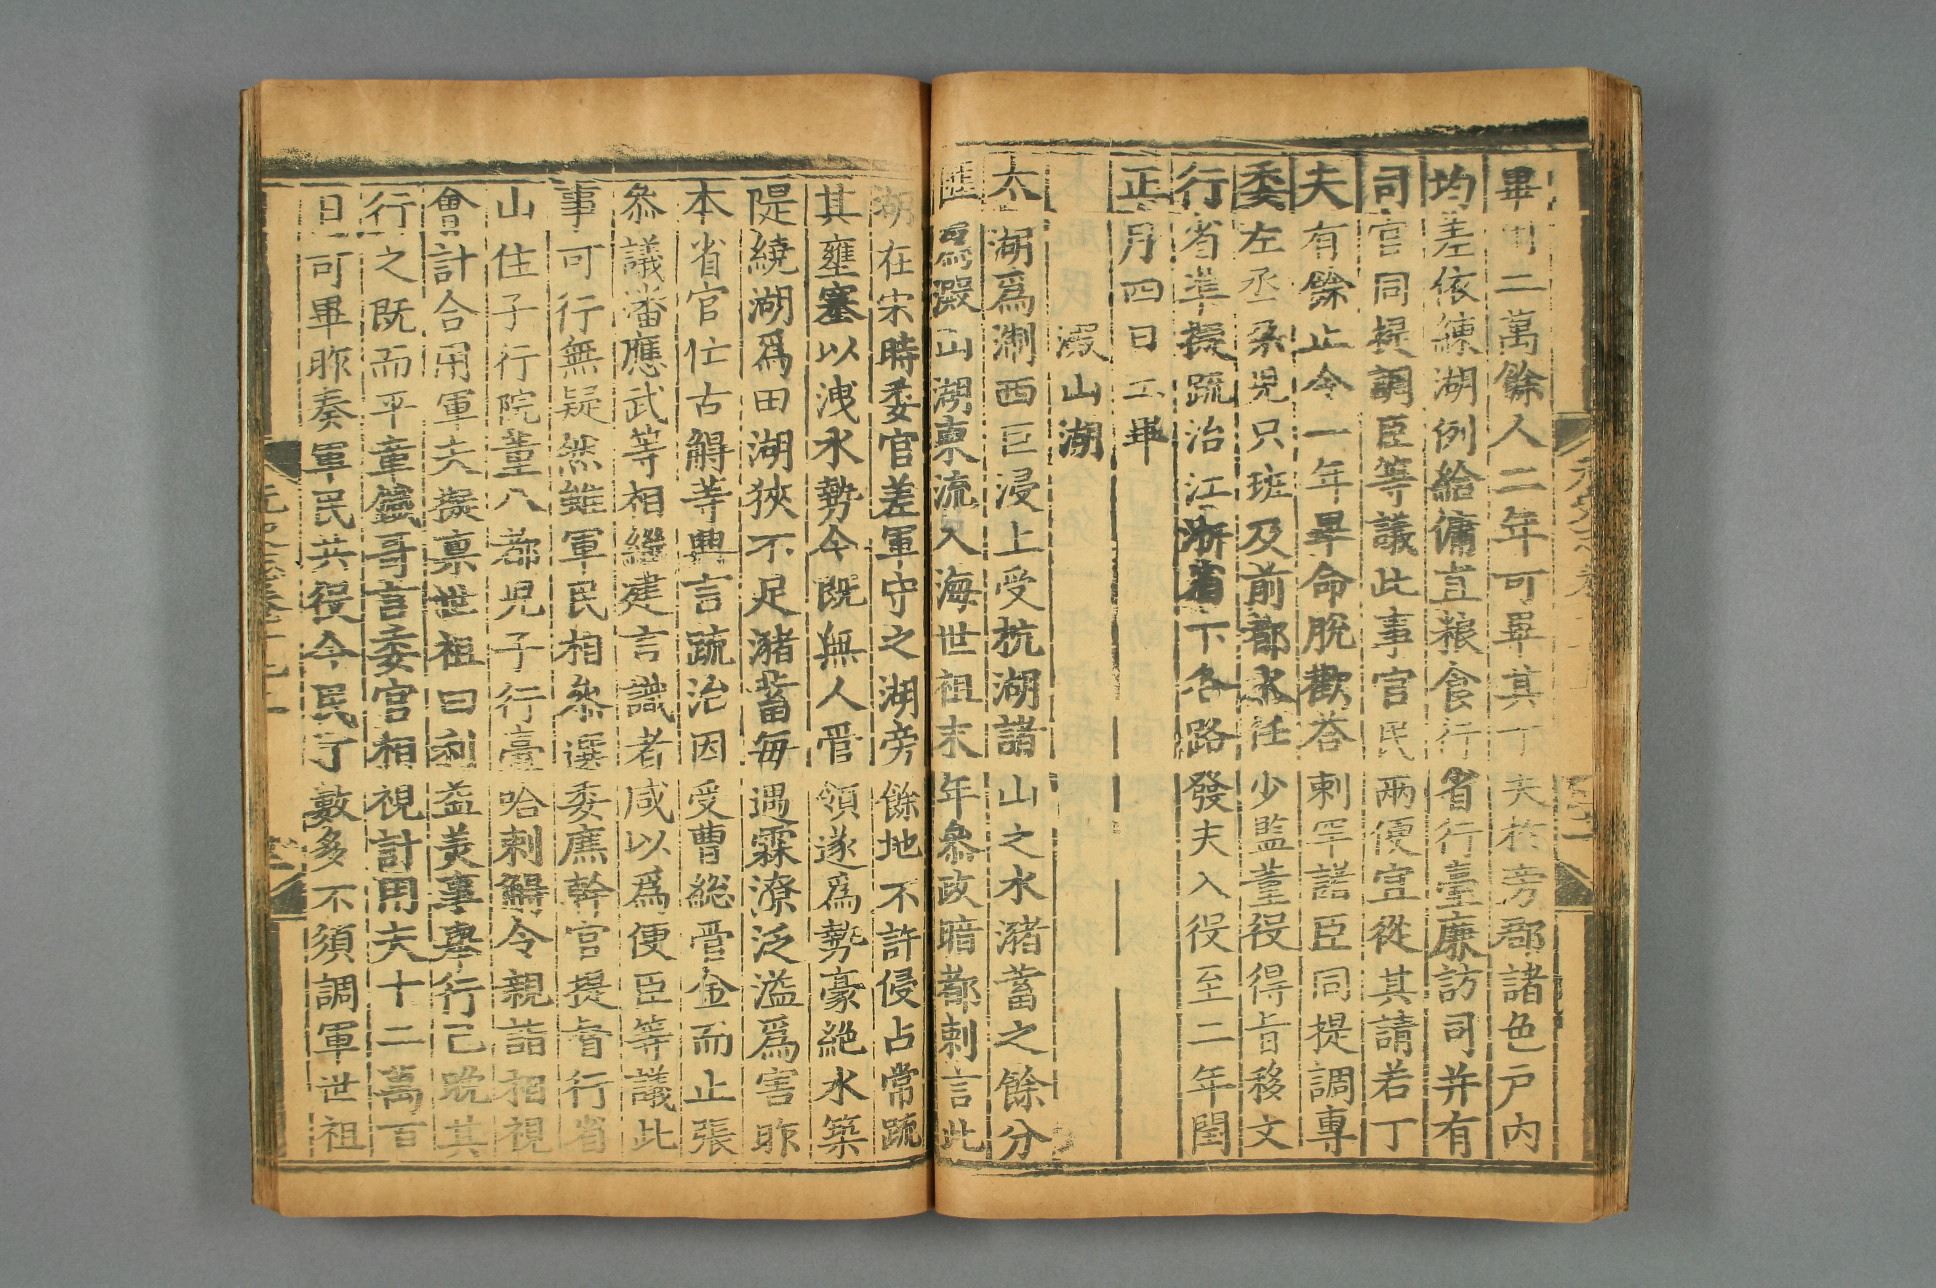 畢用二萬餘人二年可畢其丁夫於旁郡諸色戶內
均差依練湖例給傭直粮食行省行臺廉訪司并有
司官同提調臣等議此事官民兩便宜從其請若丁
夫有餘止令一年畢命脫歡荅剌罕諸臣同提調專
委左丞朶兒只班及前都水任少監董役得旨移文
行省準擬疏治江浙省下各路發夫入役至二年閏
正月四日工畢
澱山湖
太湖爲浙西巨浸上受杭湖諸山之水瀦蓄之餘分
匯爲澱山湖東流入海世祖末年叅政暗都剌言此
湖在宋時委官差軍守之湖旁餘地不許侵占常疏
其壅塞以洩水勢今既無人管領遂爲勢豪絶水築
隄繞湖爲田湖狹不足瀦蓄每遇霖潦泛溢爲害昨
本省官忙古䚟等興言疏治因受曹総管金而止張
叅議潘應武等相繼建言識者咸以爲便臣等議此
事可行無疑然雖軍民相叅選委廉幹官提督行省
山住子行院董八都兒子行臺哈剌䚟令親詣相視
會計合用軍夫擬禀世祖曰利益美事舉行已晩其
行之既而平章鐵哥言委官相視計用夫十二萬百
日可畢昨奏軍民共役今民丁數多不須調軍世祖
元史志卷十七上